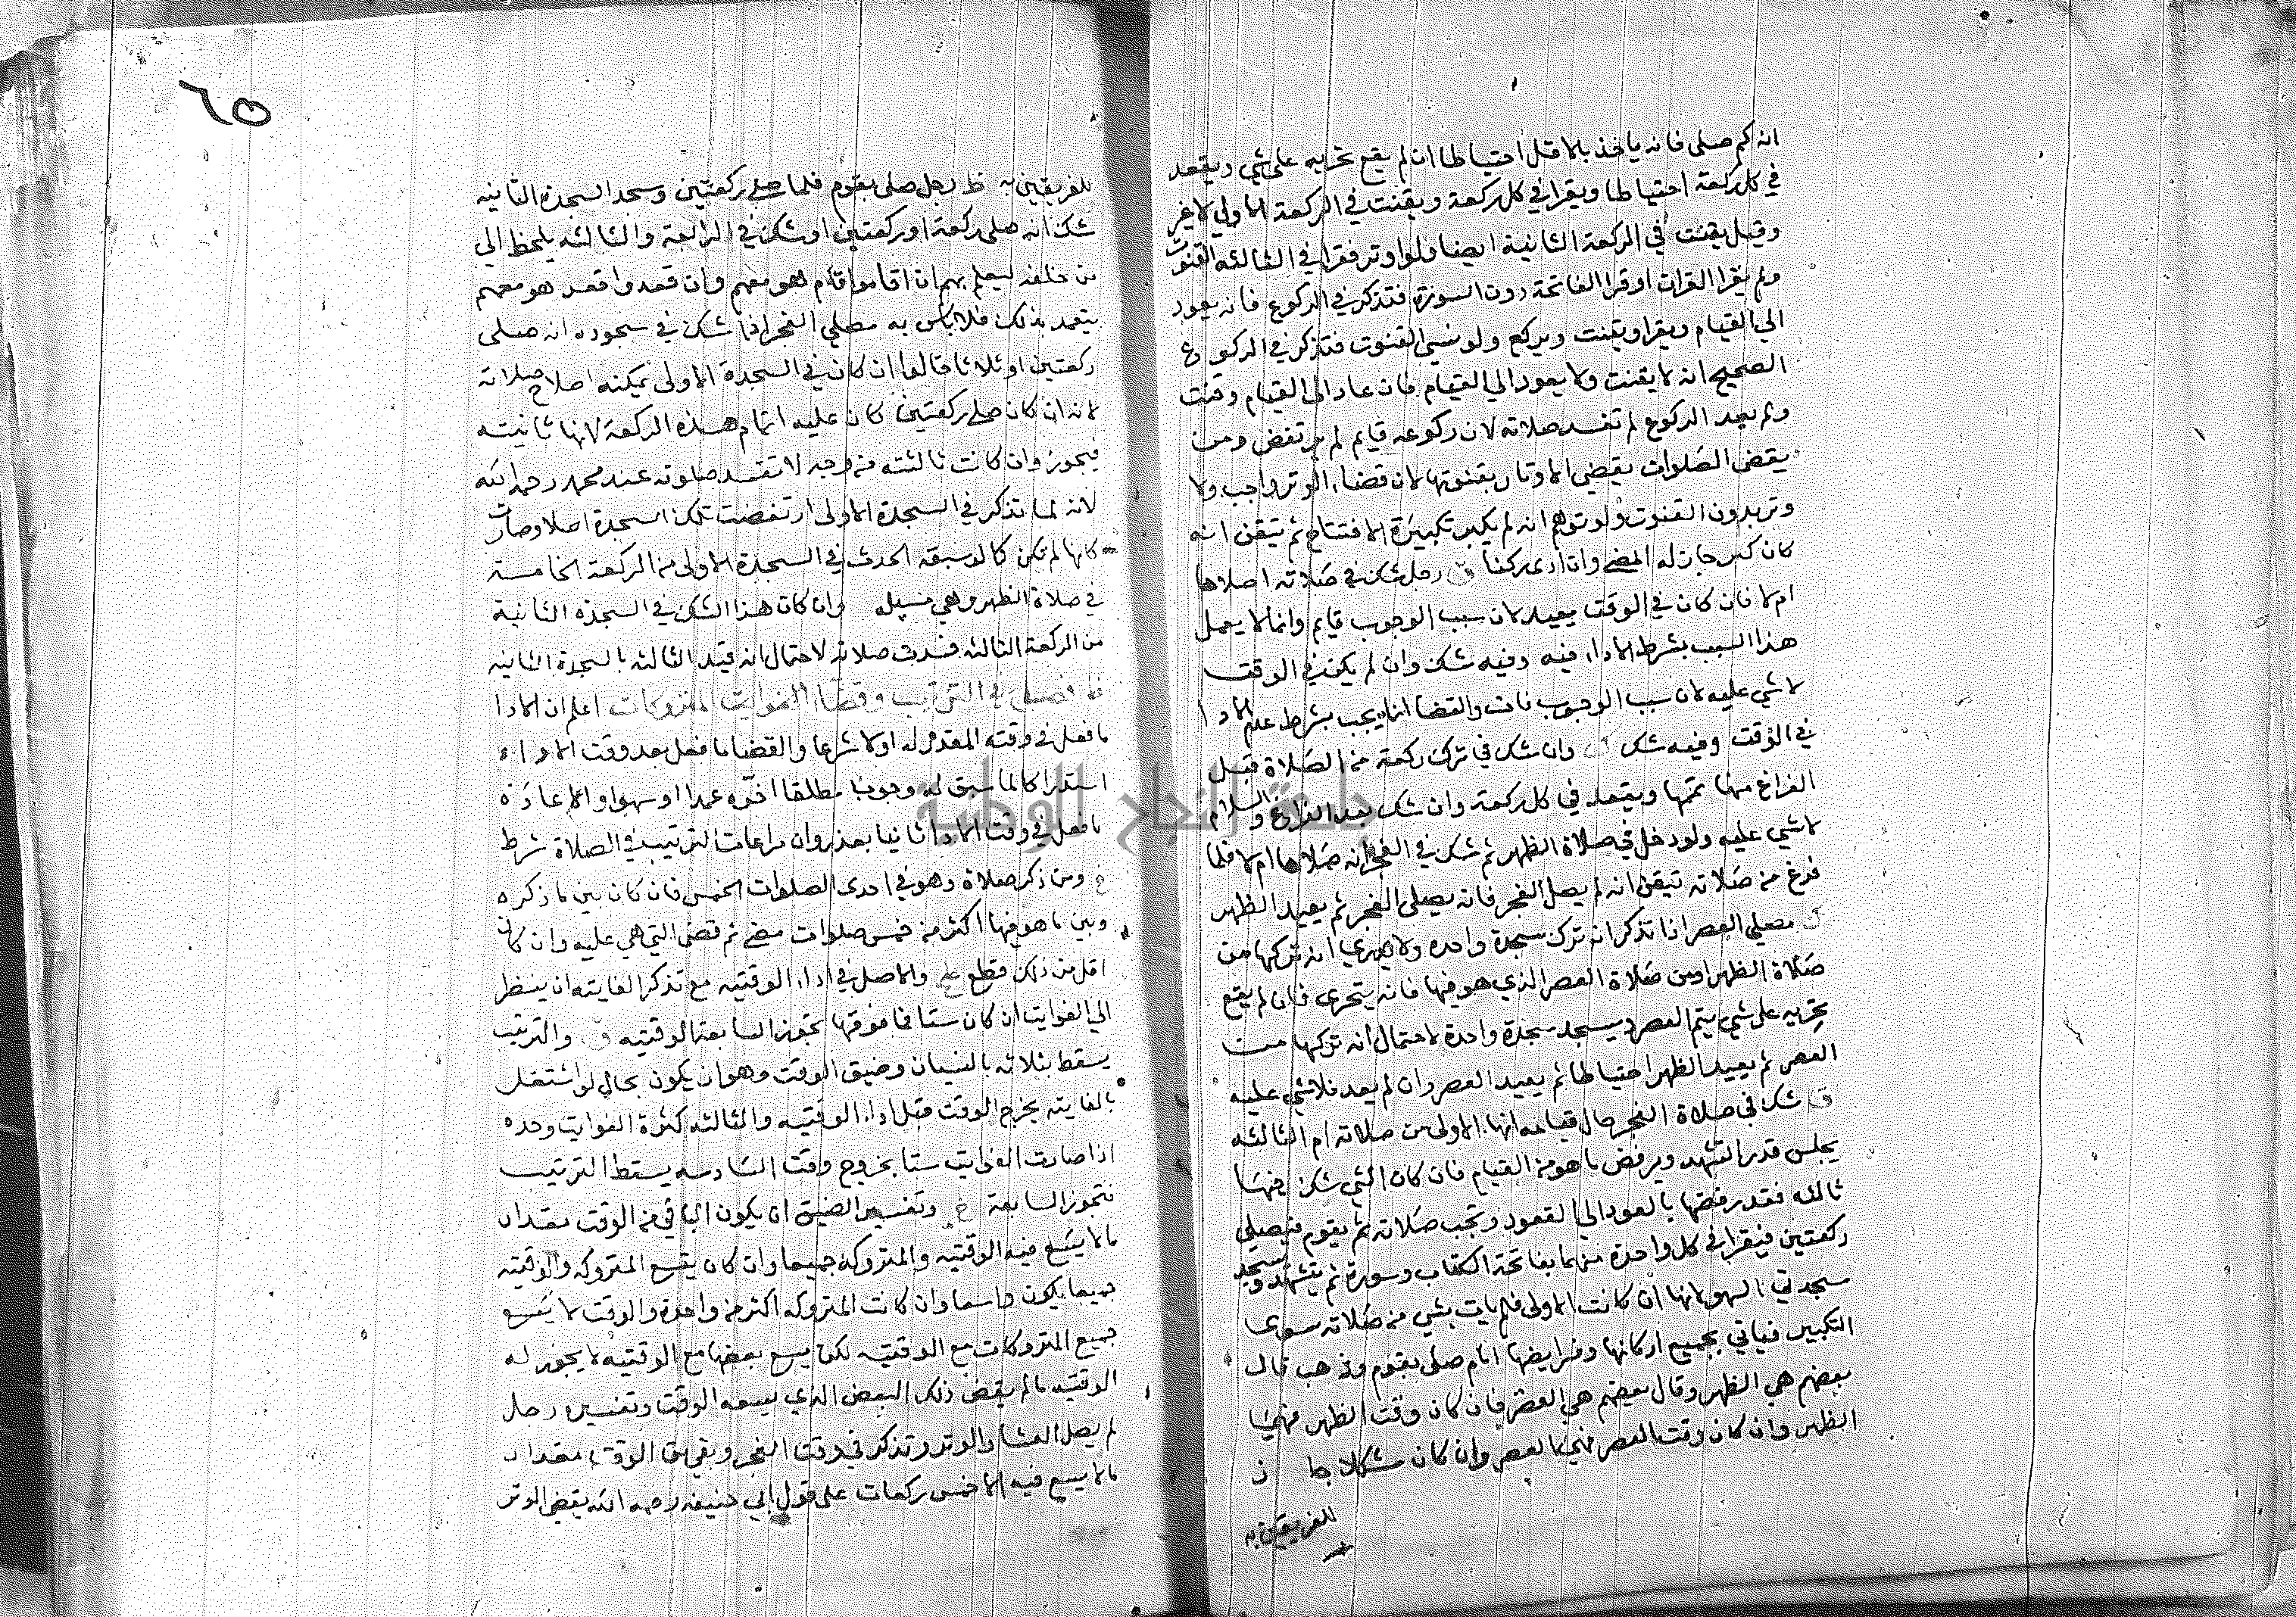 انه كم صلى فانه ياخذ بالاقل احتياطا ان لم يقع تحريه على شي ويقعد
في كل ركعة احتياطا ويقرا في كل ركعة ويقنت في الركعة الاولي لا غير
وقيل يقنت في الركعة الثانية ايضا ولو اوتر فقرا في الثالثه القنوت
ولم يقرا القران او قرا الفاتحة دون السورة فتذكر في الركوع فانه يعود
الي القيام ويقرا ويقنت ويركع ولو نسي القنوت فتذكر في الركوع
الصحيح انه لا يقنت ولا يعود الي القيام فان عاد الى القيام وقنت
ولم يعد الركوع لم تفسد صلاته لان ركوعه قايم لم يرتفض ومن
يقضي الصلوات يقضي الاوتار بقنوتها لان قضاء الوتر واجب ولا
وتر بدون القنوت ولو توهم انه لم يكبر تكبيرة الافتتاح ثم تيقن انه
كان كبر جاز له المضي وان ادى ركنا ق رجل شك في صلاته اصلاها
ام لا فان كان في الوقت يعيد لان سبب الوجوب قايم وانما لا يعمل
هذا السبب بشرط الاداء فيه وفيه شك وان لم يكن في الوقت
لا شي عليه لان سبب الوجوب فات والقضا انما يجب بشرط عدم الادا
في الوقت وفيه شك وان شك في ترك ركعة من الصلاة قبل
الفراغ منها تمها ويقعد في كل ركعة وان شك بعد الفراغ والسلام
لا شي عليه ولو دخل في صلاة الظهر ثم شك في الفجر انه صلاها ام لا فلما
فرغ من صلاته تيقن انه لم يصل الفجر فانه يصلي الفجر ثم يعيد الظهر
مصلي العصر اذا تذكر انه ترك سجدة واحدة ولا يدري انه تركها من
صلاة الظهر او من صلاة العصر الذي هو فيها فانه يتحرى فان لم يقع
تحريه على شي يتم العصر ويسجد سجدة واحدة لاحتمال انه تركها من
العصر ثم يعيد الظهر احتياطا ثم يعيد العصر وان لم يعد فلا شي عليه
ق شك في صلاة الفجر حال قيامه انها الاولى من صلاته ام الثالثه
يجلس قدر التشهد ويرفض ما هو من القيام فان كان التي شك فيها
ثالثه فقد رفضها بالعود الي القعود وتجب صلاته ثم يقوم فيصلي
ركعتين فيقرا في كل واحدة منهما بفاتحة الكتاب وسورة ثم يتشهد ويسجد
سجدتي السهو لانها ان كانت الاولى فلم يات بشي من صلاته سوى
التكبير فياتي بجميع اركانها وفرايضها امام صلى بقوم وذهب قال
بعضهم هي الظهر وقال بعضهم هي العصر فان كان وقت الظهر فهي
الظهر وان كان وقت العصر فهي العصر وان كان مشكلا جاز
للفريقين به
٦٥
للفريقين به رجل صلى بقوم فلما صلى ركعتين وسجد السجدة الثانيه
شك انه صلى ركعة او ركعتين او شك في الرابعة والثالثه يلحظ الي
من خلفه ليعلم بهم ان اقاموا قام هو معهم وان قعدوا قعد هو معهم
يتعمد بذلك فلا باس به مصلي الفجر اذا شك في سجوده انه صلى
ركعتين او ثلاثا قالوا ان كان في السجدة الاولى يمكنه اصلاح صلاته
لانه ان كان صلى ركعتين كان عليه اتمام هذه الركعة لانها ثانيته
فيجوز وان كانت ثالثته من وجه لا تفسد صلوته عند محمد رحمه الله
لانه لما تذكر في السجدة الاولى ارتفضت تلك السجدة اصلا وصارت
كانها لم تكن كما لو سبقه الحدث في السجدة الاولى من الركعة الخامسة
في صلاة الظهر وهي مسيله وان كان هذا الشك في السجدة الثانية
من الركعة الثالثه فسدت صلاته لاحتمال انه قيد الثالثه بالسجدة الثانيه
فصل في الترتيب وقضاء الفوايت المتروكات اعلم ان الادا
ما فعل في وقته المقدر له اولا شرعا والقضا ما فعل بعد وقت الاداء
استدراكا لما سبق له وجوب مطلقا اخره عمدا او سهوا والاعادة
ما فعل في وقت الادا ثانيا بعذر وان مراعات الترتيب في الصلاة شرط
خ ومن ذكر صلاة وهو في احدى الصلوات الخمس فان كان بين ما ذكره
وبين ما هو فيها اكثر من خمس صلوات مضى ثم قضى التي هي عليه وان كان
اقل من ذلك قطع والاصل في اداء الوقتيه مع تذكر الفايته ان ينظر
الي الفوايت ان كان ستا فما فوقها تجوز السابعة الوقتيه ق والترتيب
يسقط بثلاثه بالنسيان وضيق الوقت وهو ان يكون بحال لو اشتغل
بالفايته يخرج الوقت قبل اداء الوقتيه والثالثه كثرة الفوايت وحده
اذا صارت الفوايت ستا بخروج وقت السادسه يسقط الترتيب
فتجوز السابعة خ وتفسير الضيق ان يكون الباقي من الوقت مقدار
ما لا يسع فيه الوقتيه والمتروكه جميعا وان كان يسع المتروكه والوقتيه
جميعا يكون واسعا وان كانت المتروكه اكثر من واحدة والوقت لا يسع
جميع المتروكات مع الوقتيه لكن يسع بعضها مع الوقتيه لا يجوز له
الوقتيه ما لم يقض ذلك البعض الذي يسعه الوقت وتفسيره رجل
لم يصل العشا والوتر وتذكر في وقت الفجر وبقي من الوقت مقدار
ما لا يسع فيه الا خمس ركعات على قول ابي حنيفه رحمه الله يقضي الوتر
جامعة النجاح الوطنية